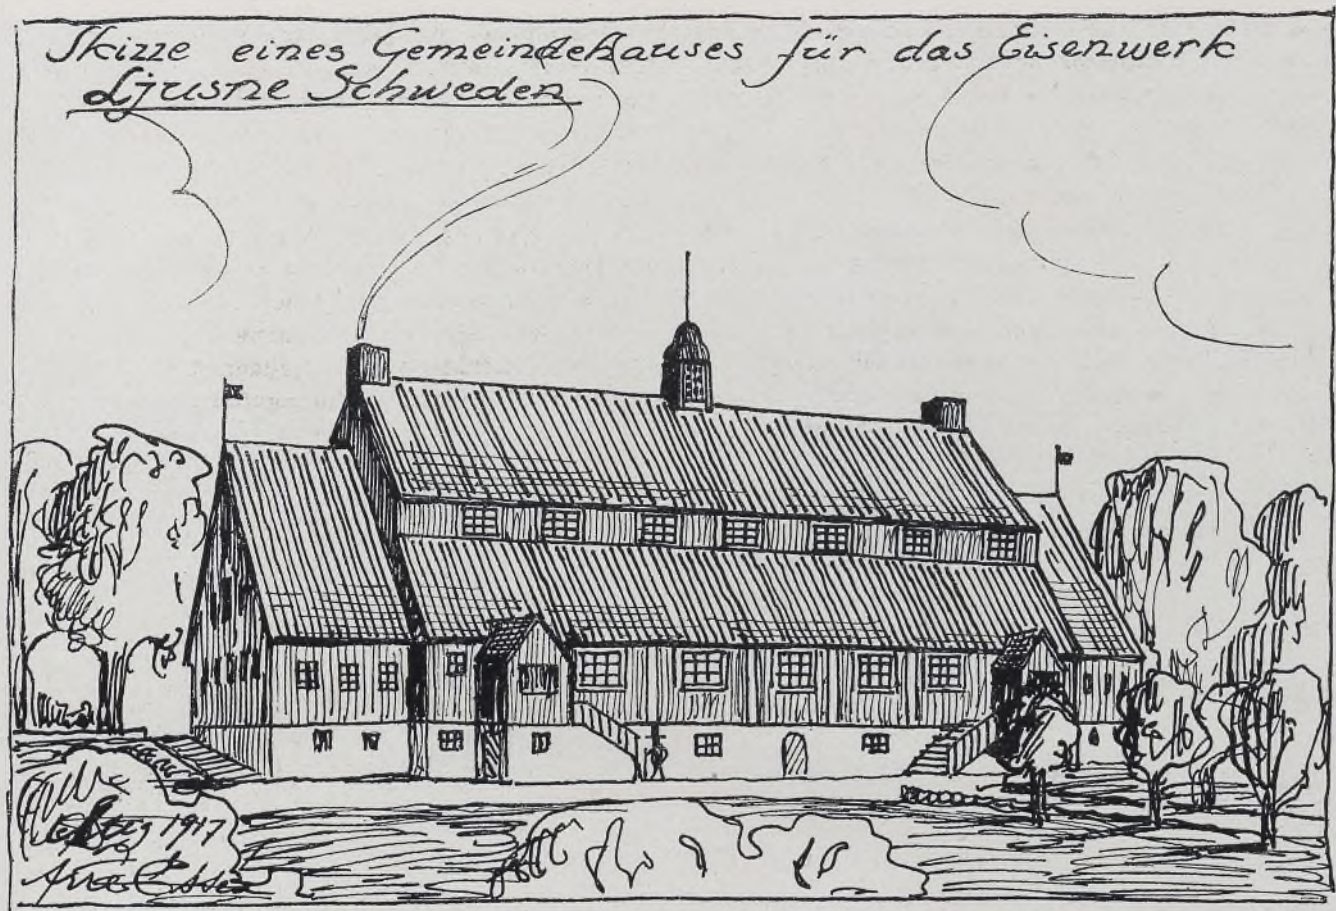 Skizze eines Gemeindehauses für das Eisenwerk
Ljusne Schweden
1917